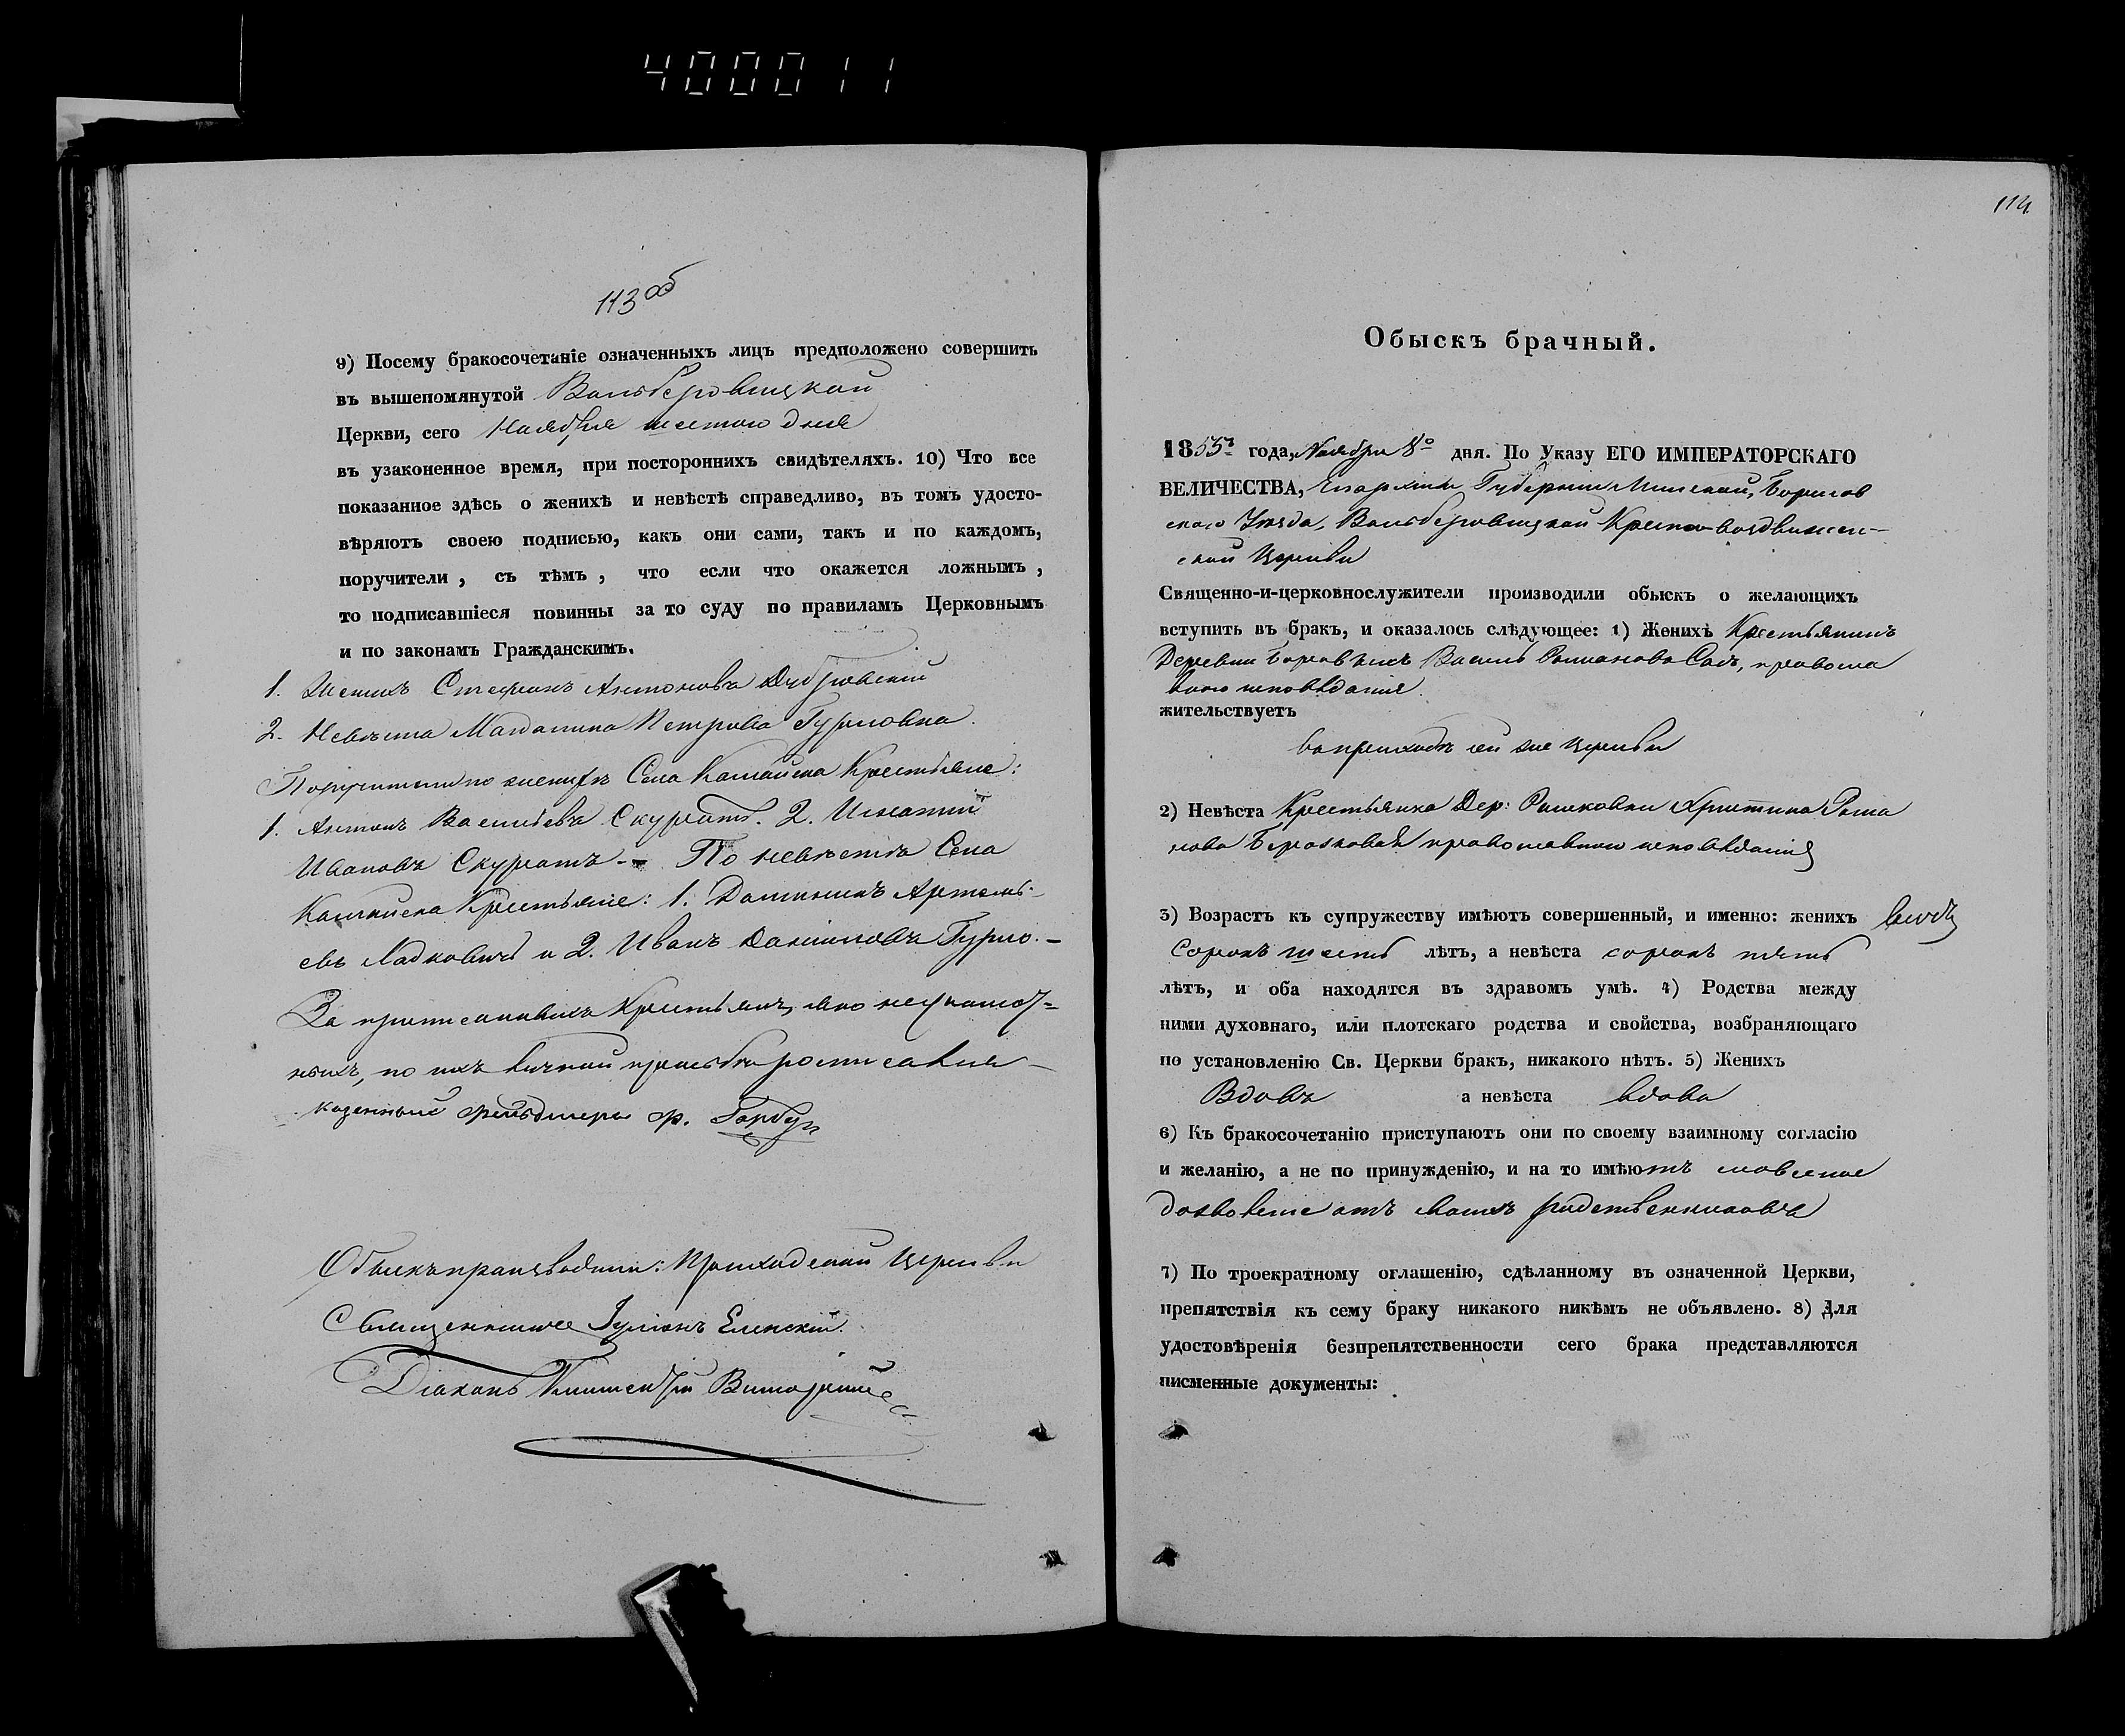 4000011
113 об
9) Посему бракосочетаніе означенныхъ лицъ предположено совершить
въ вышепомянутой Вольберовицкой
Церкви, сего Ноября шестого дня
въ узаконенное время, при постороннихъ свидѣтеляхъ. 10) Что все
показанное здѣсь о женихѣ и невѣстѣ справедливо, въ томъ удосто-
вѣряютъ своею подписью, какъ они сами, такъ и по каждомъ,
поручители, съ тѣмъ, что если что окажется ложнымъ,
то подписавшіеся повинны за то суду по правиламъ Церковнымъ
и по законамъ Гражданскимъ.
1. Женихъ Стефанъ Антоновъ Дубровскій
2. Невѣста Магдалина Петрова Гурновна.
Поручители по женихѣ Села Крестьяне:
1. Антонъ Васильевъ Скуратъ. 2. Игнатій
Ивановъ Скуратъ - По невѣстѣ Села
Крестьяне: 1. Доминикъ Артемь-
евъ Ладковичъ и 2. Иванъ Даниловъ Гурно.
За крестьянъ, яко неграмот-
ныхъ, по ихъ личной просьбѣ росписался
фельдшеръ Ф. Горбуз
Обыскъ производили: Приходской Церкви
Священникъ Іуліанъ Еленскій.
Діаконъ
114
Обыскъ брачный.
1855 года, Ноября 8 дня. По Указу ЕГО ИМПЕРАТОРСКАГО
ВЕЛИЧЕСТВА, Епархіи Губерніи Минской, Борисов
скаго Уѣзда, Вольберовицкой Кресто-воздвижен-
ской Церкви
Священно-и-церковнослужители производили обыскъ о желающихъ
вступить въ бракъ, и оказалось слѣдующее: 1) Женихъ Крестьянинъ
Деревни Василь Романовъ Садъ, правосла
вного исповѣданія.
жительствуетъ
въ приходѣ сей же Церкви
2) Невѣста Крестьянка Дер: Христина Рома
нова православного исповѣданія
3) Возрастъ къ супружеству имѣютъ совершенный, и именно: женихъ
Сорокъ шесть лѣтъ, а невѣста сорокъ пять
лѣтъ, и оба находятся въ здравомъ умѣ. 4) Родства между
ними духовнаго, или плотскаго родства и свойства, возбраняющаго
по установленію Св. Церкви бракъ, никакого нѣтъ. 5) Женихъ
Вдовъ а невѣста вдова
6) Къ бракосочетанію приступаютъ они по своему взаимному согласію
и желанію, а не по принужденію, и на то имѣютъ словесное
дозволеніе отъ своихъ родственниковъ
7) По троекратному оглашенію, сдѣланному въ означенной Церкви,
препятствія къ сему браку никакого никѣмъ не объявлено. 8) Для
удостовѣренія безпрепятственности сего брака представляются
писменные документы: